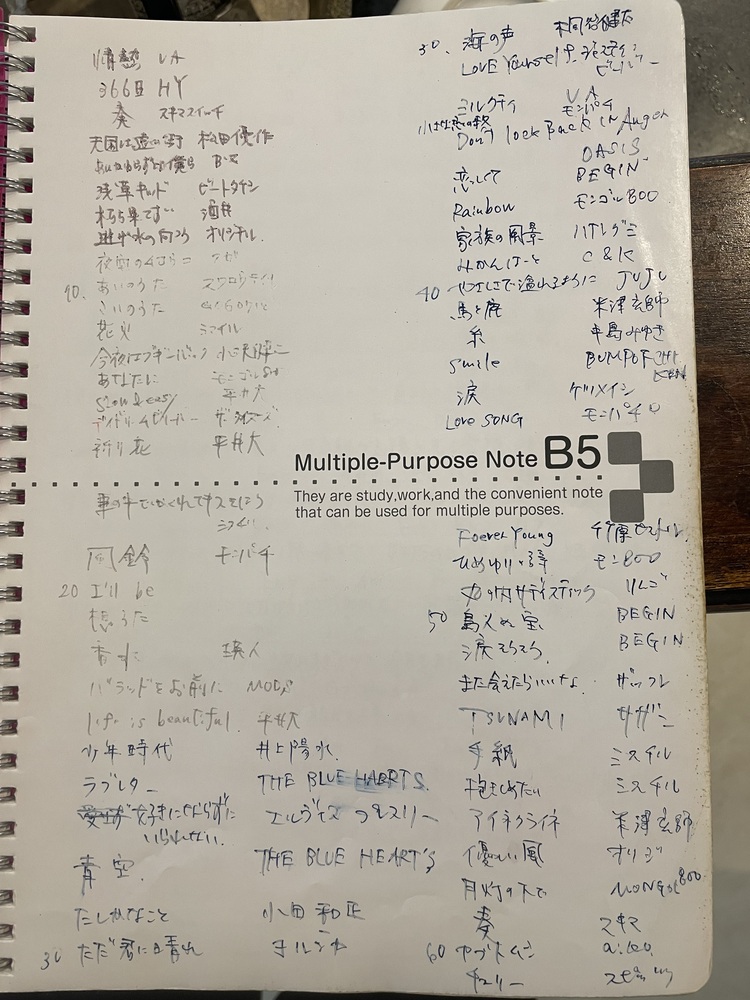 情熱 UA
366日 HY
奏 スキマスイッチ
天国は遠い 松田優作
B'z
浅草キッド ビートタケシ
朽ち果てず 酒井
逃げ水の向こう オリジナル.
夜空の
10. あいのうた スワロウテイル
さいのうた
花火 スマイル
今夜はブギーバック 小沢健二
あなたに モンゴル800
Slow & easy 平井大
デイドリームビリーバー ザ・タイマーズ
祈り花 平井大
車の中でかくれてキスをしよう
ミスチル
風鈴 モンパチ
20 I'll be
想うた
香水 瑛人
バラッドをお前に MODS
life is beautiful. 平井大
少年時代 井上陽水.
ラブレター THE BLUE HEARTS.
好きにならずに エルヴィスプレスリー
いられない.
青空. THE BLUE HEART'S
たしかなこと 小田和正
30 ただ君に晴れ ヨルシカ
30. 海の声 桐谷健太
LOVE Yourself ジャスティン
ビーバー
ミルクティ UA
小さな恋の終 モンパチ
Don't look Back in Anger
OASIS
恋しくて BEGIN
Rainbow モンゴル800
家族の風景 ハナレグミ
みかんはーと C & K
40 やさしさで溢れるように JUJU
馬と鹿 米津玄師
糸 中島みゆき
smile BUMP OF
涙 ケツメイシ
Love SONG モンパチ
Multiple-Purpose Note B5
They are study,work,and the convenient note
that can be used for multiple purposes.
Foever Young 竹原ピストル
ひめゆりの詩 モン800
丸の内サディスティック リンゴ
50 島人ぬ宝 BEGIN
涙そうそう. BEGIN
また会えたらいいな. ザッフレ
TSUNAMI サザン
手紙 ミスチル
抱きしめたい ミスチル
アイネクライネ 米津玄師
優しい風 オリジ
月灯の下で MONGOL800
奏 スキマ
60 カブトムシ aiko.
チェリー スピッツ